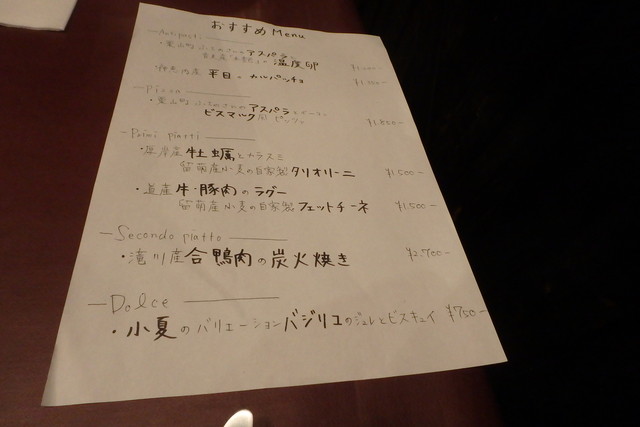 おすすめ Menu
— Antipasti —
・栗山町 アスパラと
温度卵 ¥1,
産 平目の カルパッチョ
— Pizza —
・栗山町 アスパラと
ビスマルク風 ピッツァ ¥1,850-
— Primi piatti —
・厚岸産 牡蠣とカラスミ
留萌産小麦の自家製 タリオリーニ ¥1,500-
・道産 牛・豚肉のラグー
留萌産小麦の自家製 フェットチーネ ¥1,500-
— Secondo piatto —
・滝川産 合鴨肉の炭火焼き ¥2,700-
— Dolce —
・小夏のバリエーション バジリコのジュレとビスキュイ ¥750-